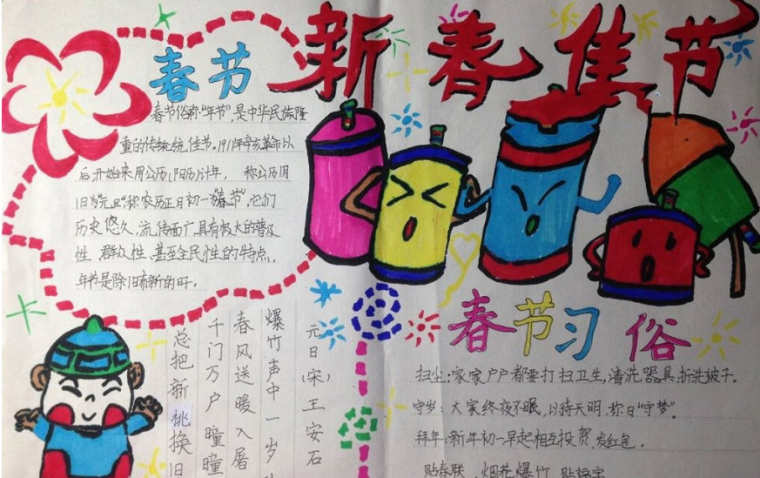 新春佳节
春节
春节俗称"年节",是中华民族隆
重的传统佳节,
后开始采用公历
历史悠久,流传面广,具有极大的普及
性、群众性、甚至全民性的特点,
年节是除旧布新的日
元日(宋)王安石
爆竹声中一岁
春风送暖入屠
千门万户曈曈
总把新桃换旧
春节习俗
扫尘:家家户户都要打扫卫生,清洗器具,拆洗被子。
守岁:大家终夜不眠,以待天明,称曰"守梦"。
拜年:新年初一早起相互投贺,发红包。
贴春联、烟花爆竹、贴福字